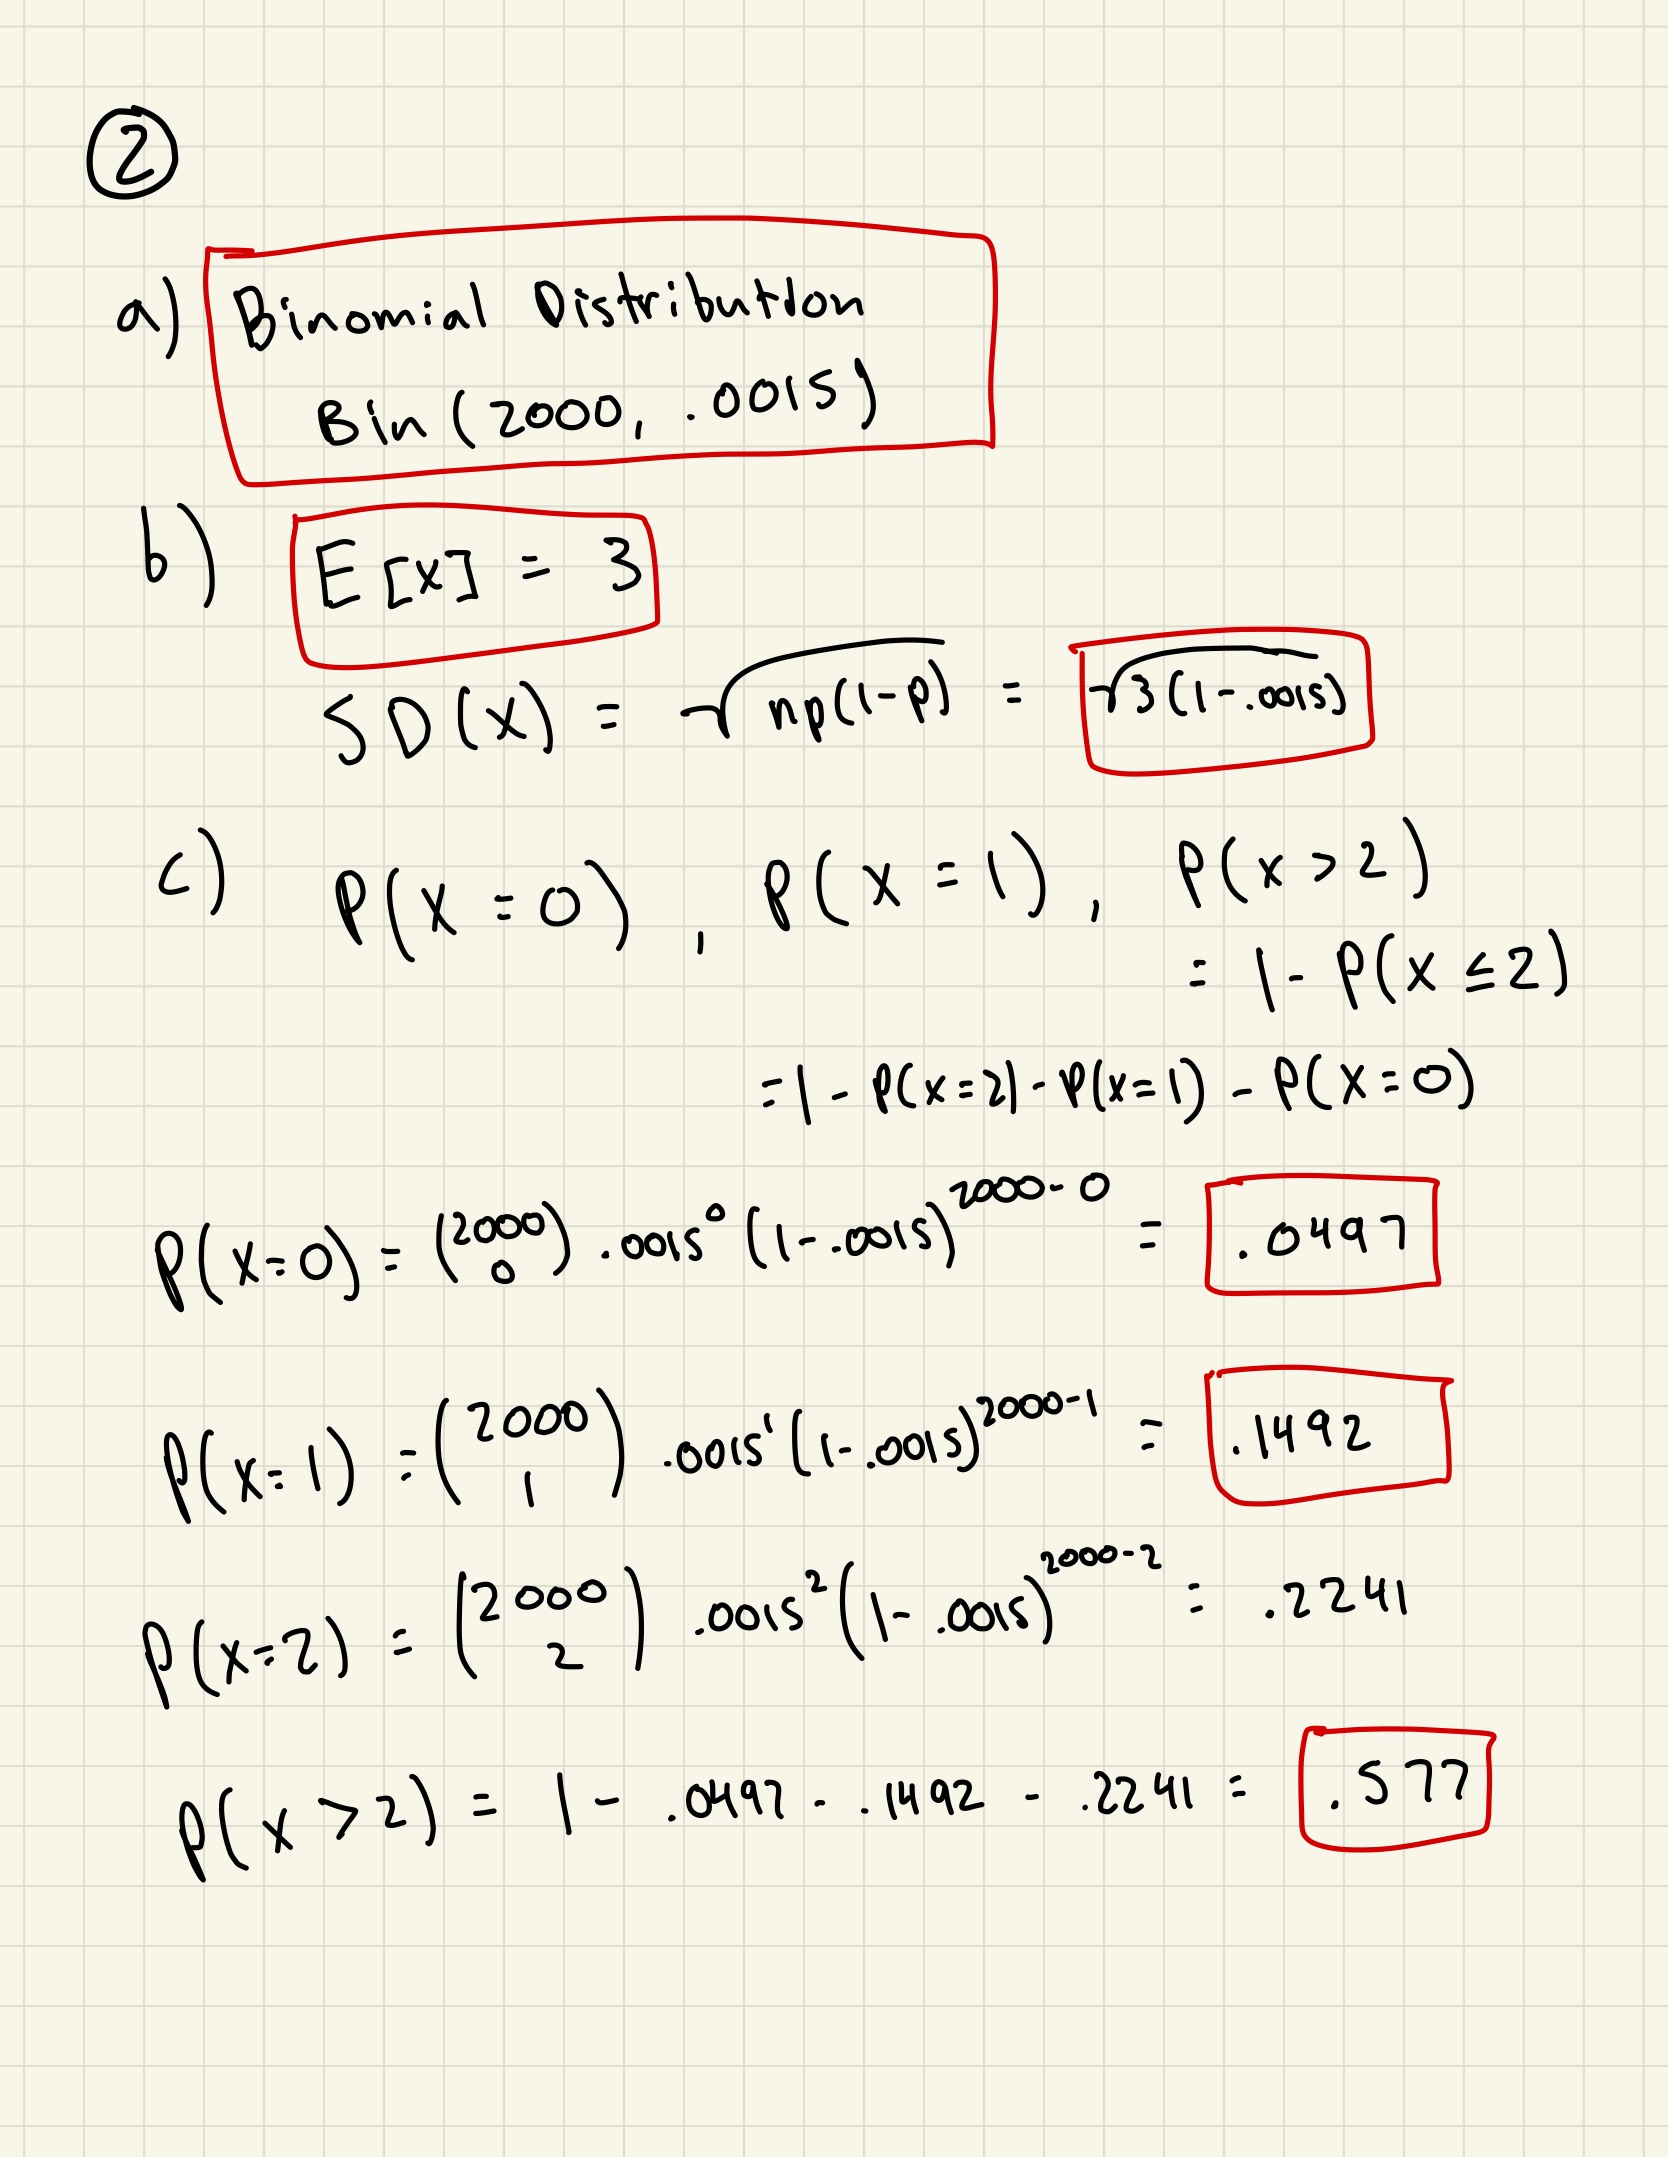 2
a) Binomial Distribution
Bin (2000, .0015)
b) E[X] = 3
SD(X) = √np(1-p) = √3(1-.0015)
c) P(X = 0), P(X = 1), P(X > 2)
= 1 - P(X ≤ 2)
= 1 - P(X=2) - P(X=1) - P(X=0)
P(X=0) = (2000 0) .0015⁰ (1-.0015)²⁰⁰⁰⁻⁰ = .0497
P(X=1) = (2000 1) .0015¹ (1-.0015)²⁰⁰⁰⁻¹ = .1492
P(X=2) = (2000 2) .0015² (1-.0015)²⁰⁰⁰⁻² = .2241
P(X > 2) = 1 - .0497 - .1492 - .2241 = .577